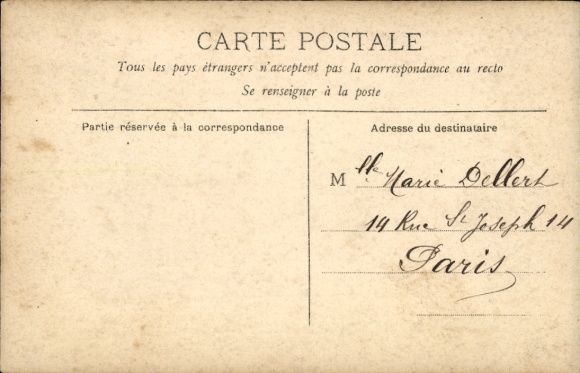 CARTE POSTALE
Tous les pays étrangers n'acceptent pas la correspondance au recto
Se renseigner à la poste
Partie réservée à la correspondance
Adresse du destinataire
Mlle Marie Dellert
14 Rue St Joseph 14
Paris